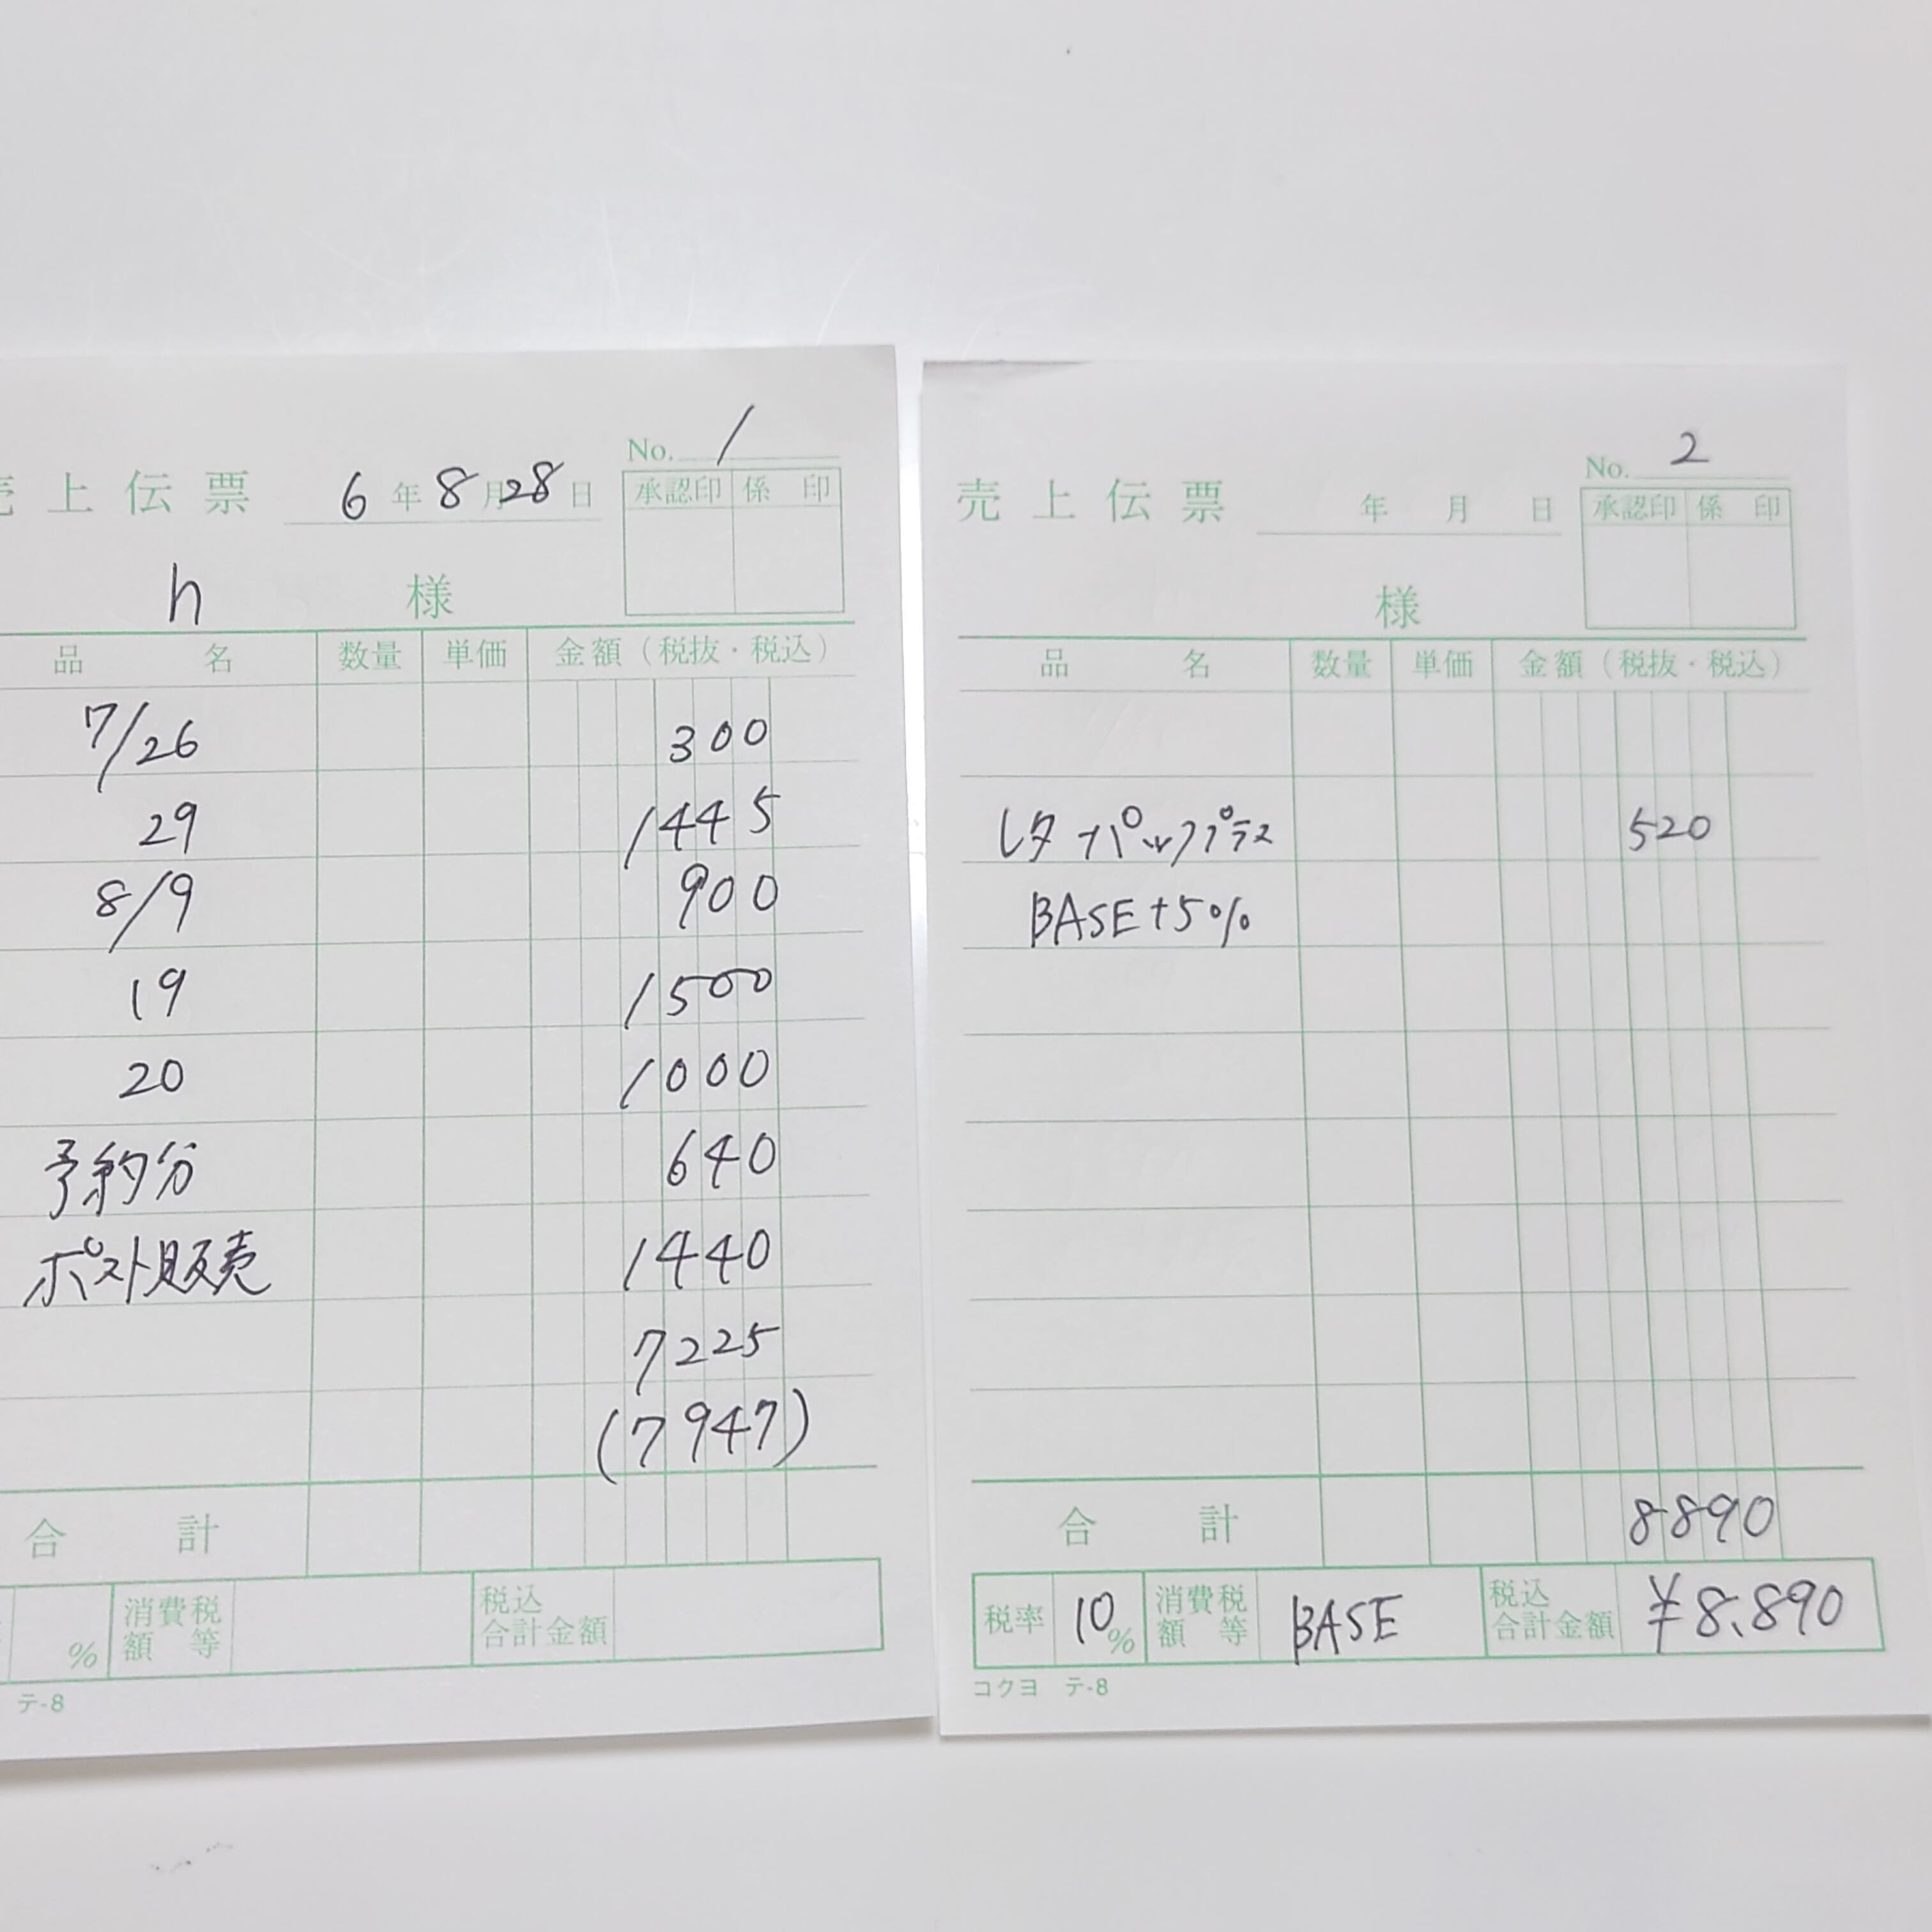 売上伝票 6年8月28日 No. 1
承認印 係印
h 様
品名 数量 単価 金額(税抜・税込)
7/26 300
29 1445
8/9 900
19 1500
20 1000
予約分 640
ポスト販売 1440
7225
(7947)
合計
% 消費税額等 税込合計金額
テ-8
売上伝票 年 月 日 No. 2
承認印 係印
様
品名 数量 単価 金額(税抜・税込)
レタパップラス 520
BASE+5%
合計 8890
税率 10% 消費税額等 BASE 税込合計金額 ¥8,890
コクヨ テ-8